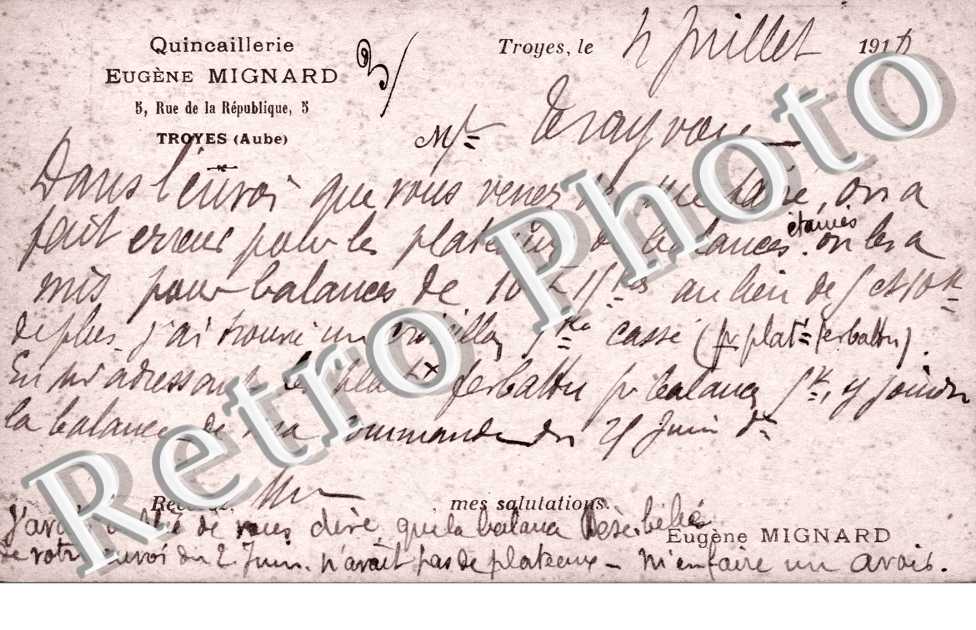 Quincaillerie
EUGÈNE MIGNARD
5, Rue de la République, 5
TROYES (Aube)
Troyes, le 4 Juillet 191
Mr
Dans l'envoi que vous venez de me faire, on a
fait erreur pour les plateaux de balances étamés on les a
mis pour balances de 10 & 15 ks au lieu de 5 et 10 k
de plus, j'ai trouvé un 5 k cassé (pr plat ferbattu).
En m'adressant les plat x ferbattu pr balance 5 k, y joindre
la balance de ma commande du 25 Juin dr
Recevez, Mr mes salutations.
Eugène MIGNARD
J'avais oublié de vous dire que la balance pèse-bébés
de votre envoi du 2 Juin. n'avait pas de plateaux - m'en faire un avoir.
Retro Photo